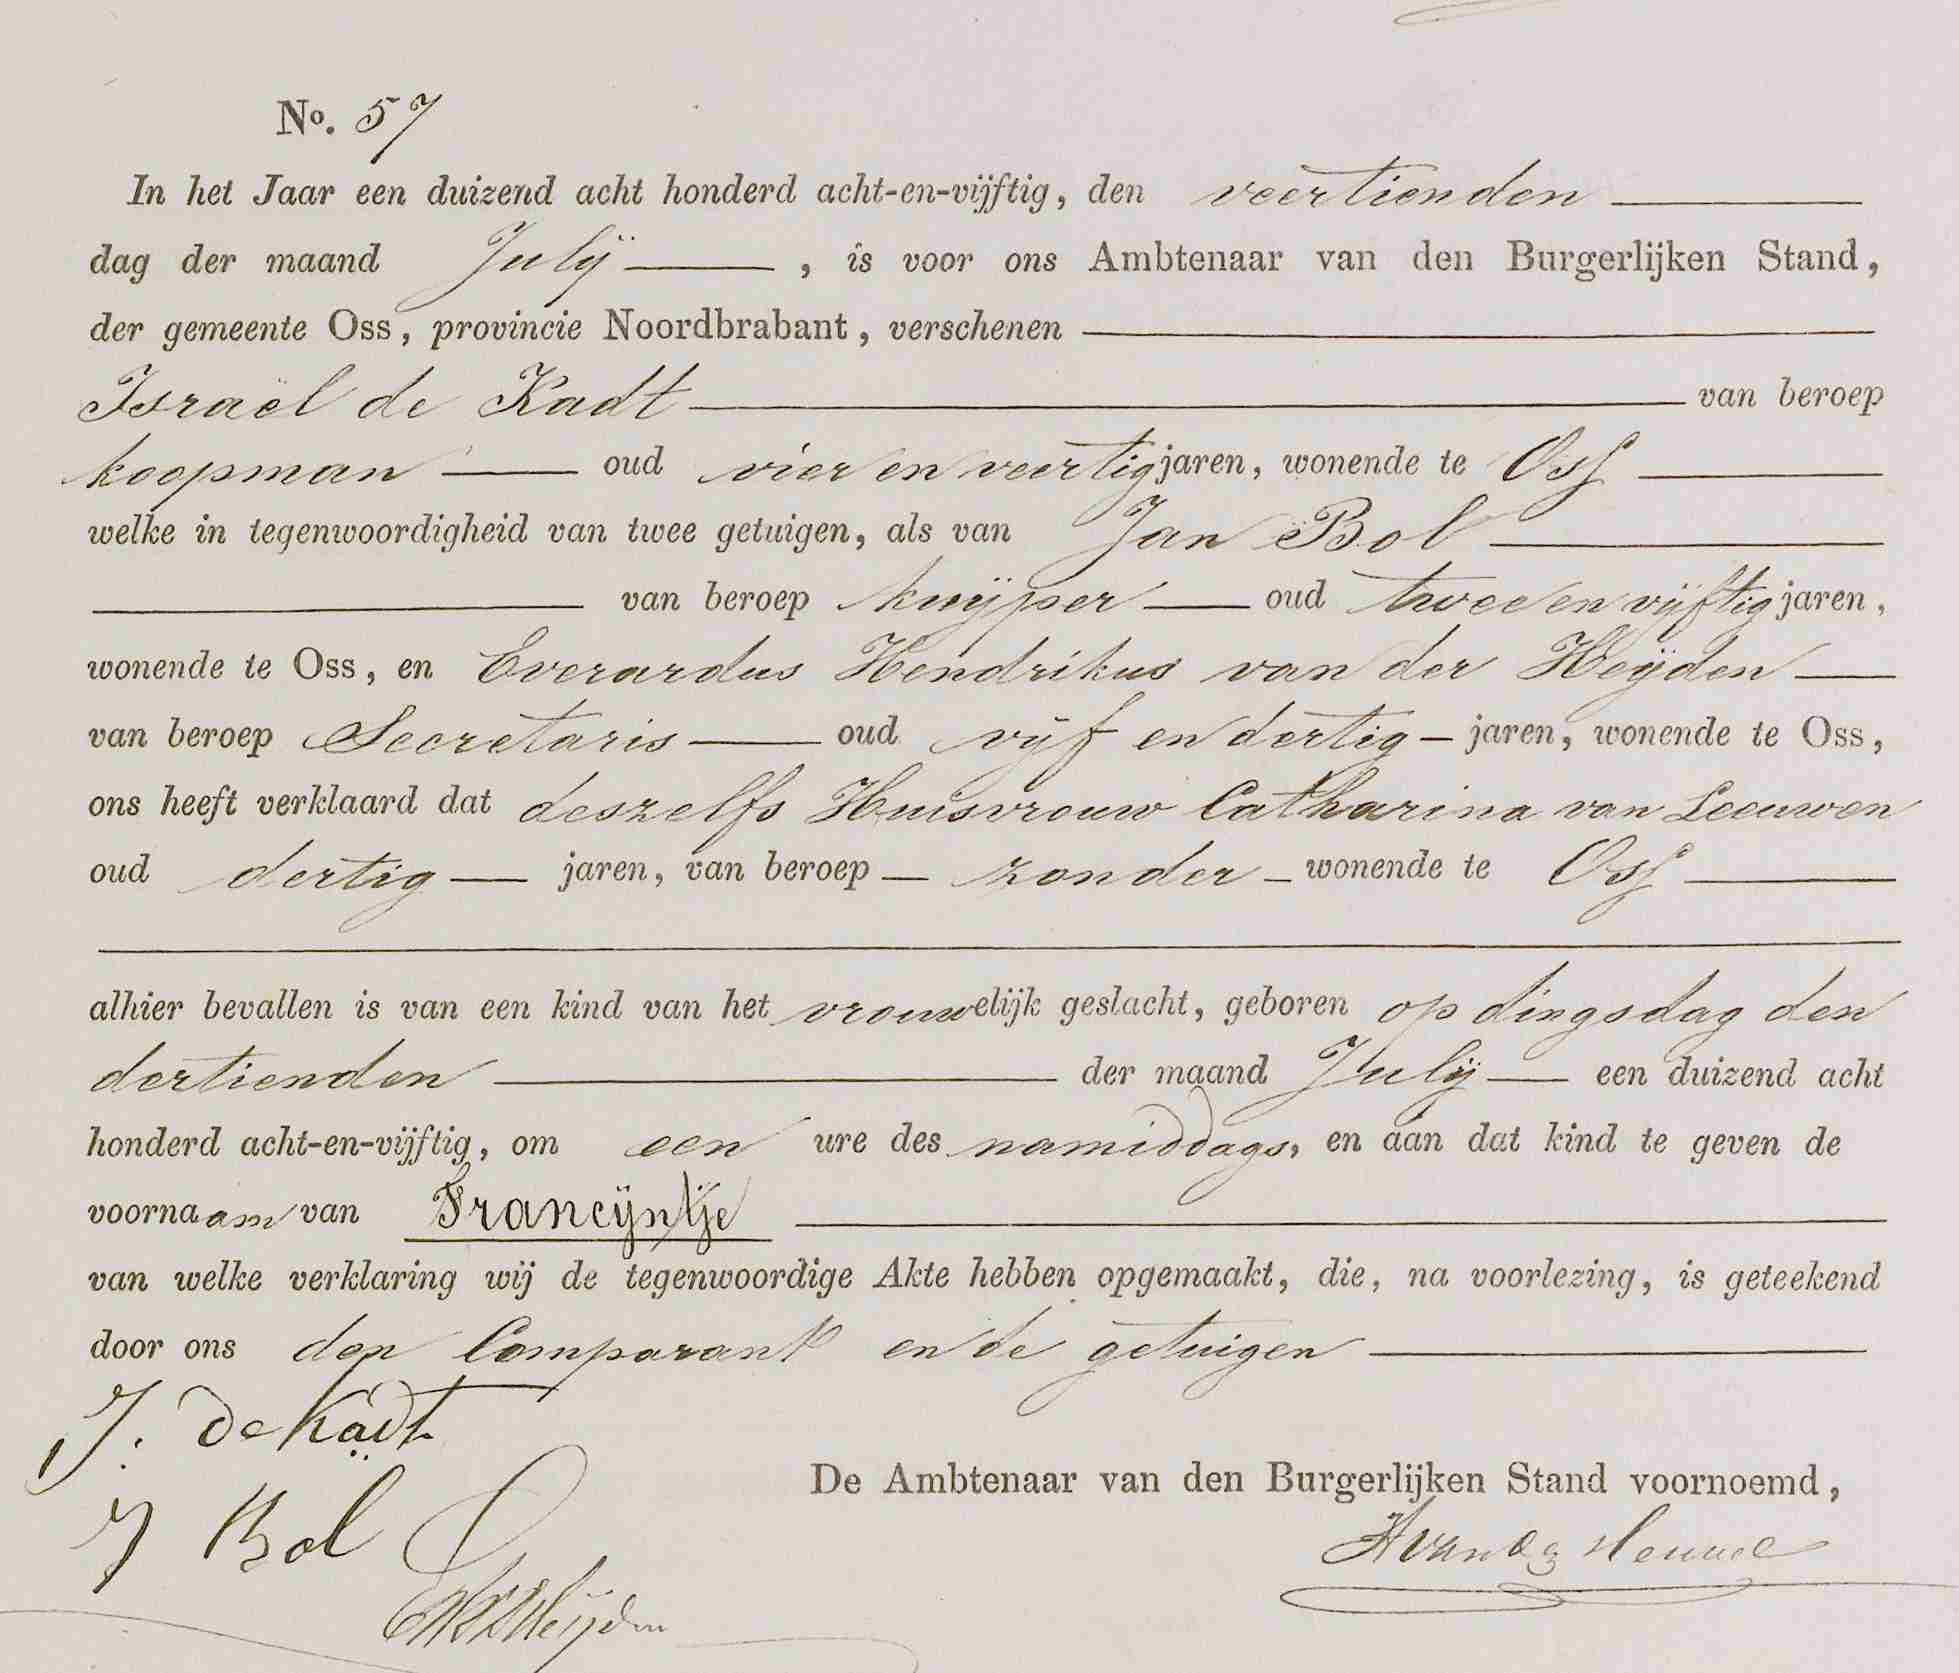 No. 57
In het Jaar een duizend acht honderd acht-en-vijftig, den veertienden
dag der maand Julij, is voor ons Ambtenaar van den Burgerlijken Stand,
der gemeente Oss, provincie Noordbrabant, verschenen
Israël de Kadt van beroep
koopman oud vier en veertig jaren, wonende te Oss
welke in tegenwoordigheid van twee getuigen, als van Jan Bol
van beroep kuijper oud twee en vijftig jaren,
wonende te Oss, en Everardus Hendrikus van der Heijden
van beroep Secretaris oud vijf en dertig jaren, wonende te Oss,
ons heeft verklaard dat deszelfs Huisvrouw Catharina van Leeuwen
oud dertig jaren, van beroep zonder wonende te Oss
alhier bevallen is van een kind van het vrouwelijk geslacht, geboren op dingsdag den
dertienden der maand Julij een duizend acht
honderd acht-en-vijftig, om een ure des namiddags, en aan dat kind te geven de
voornaam van Francijntje
van welke verklaring wij de tegenwoordige Akte hebben opgemaakt, die, na voorlezing, is geteekend
door ons den Comparant en de getuigen
J. de Kadt
De Ambtenaar van den Burgerlijken Stand voornoemd,
J Bol